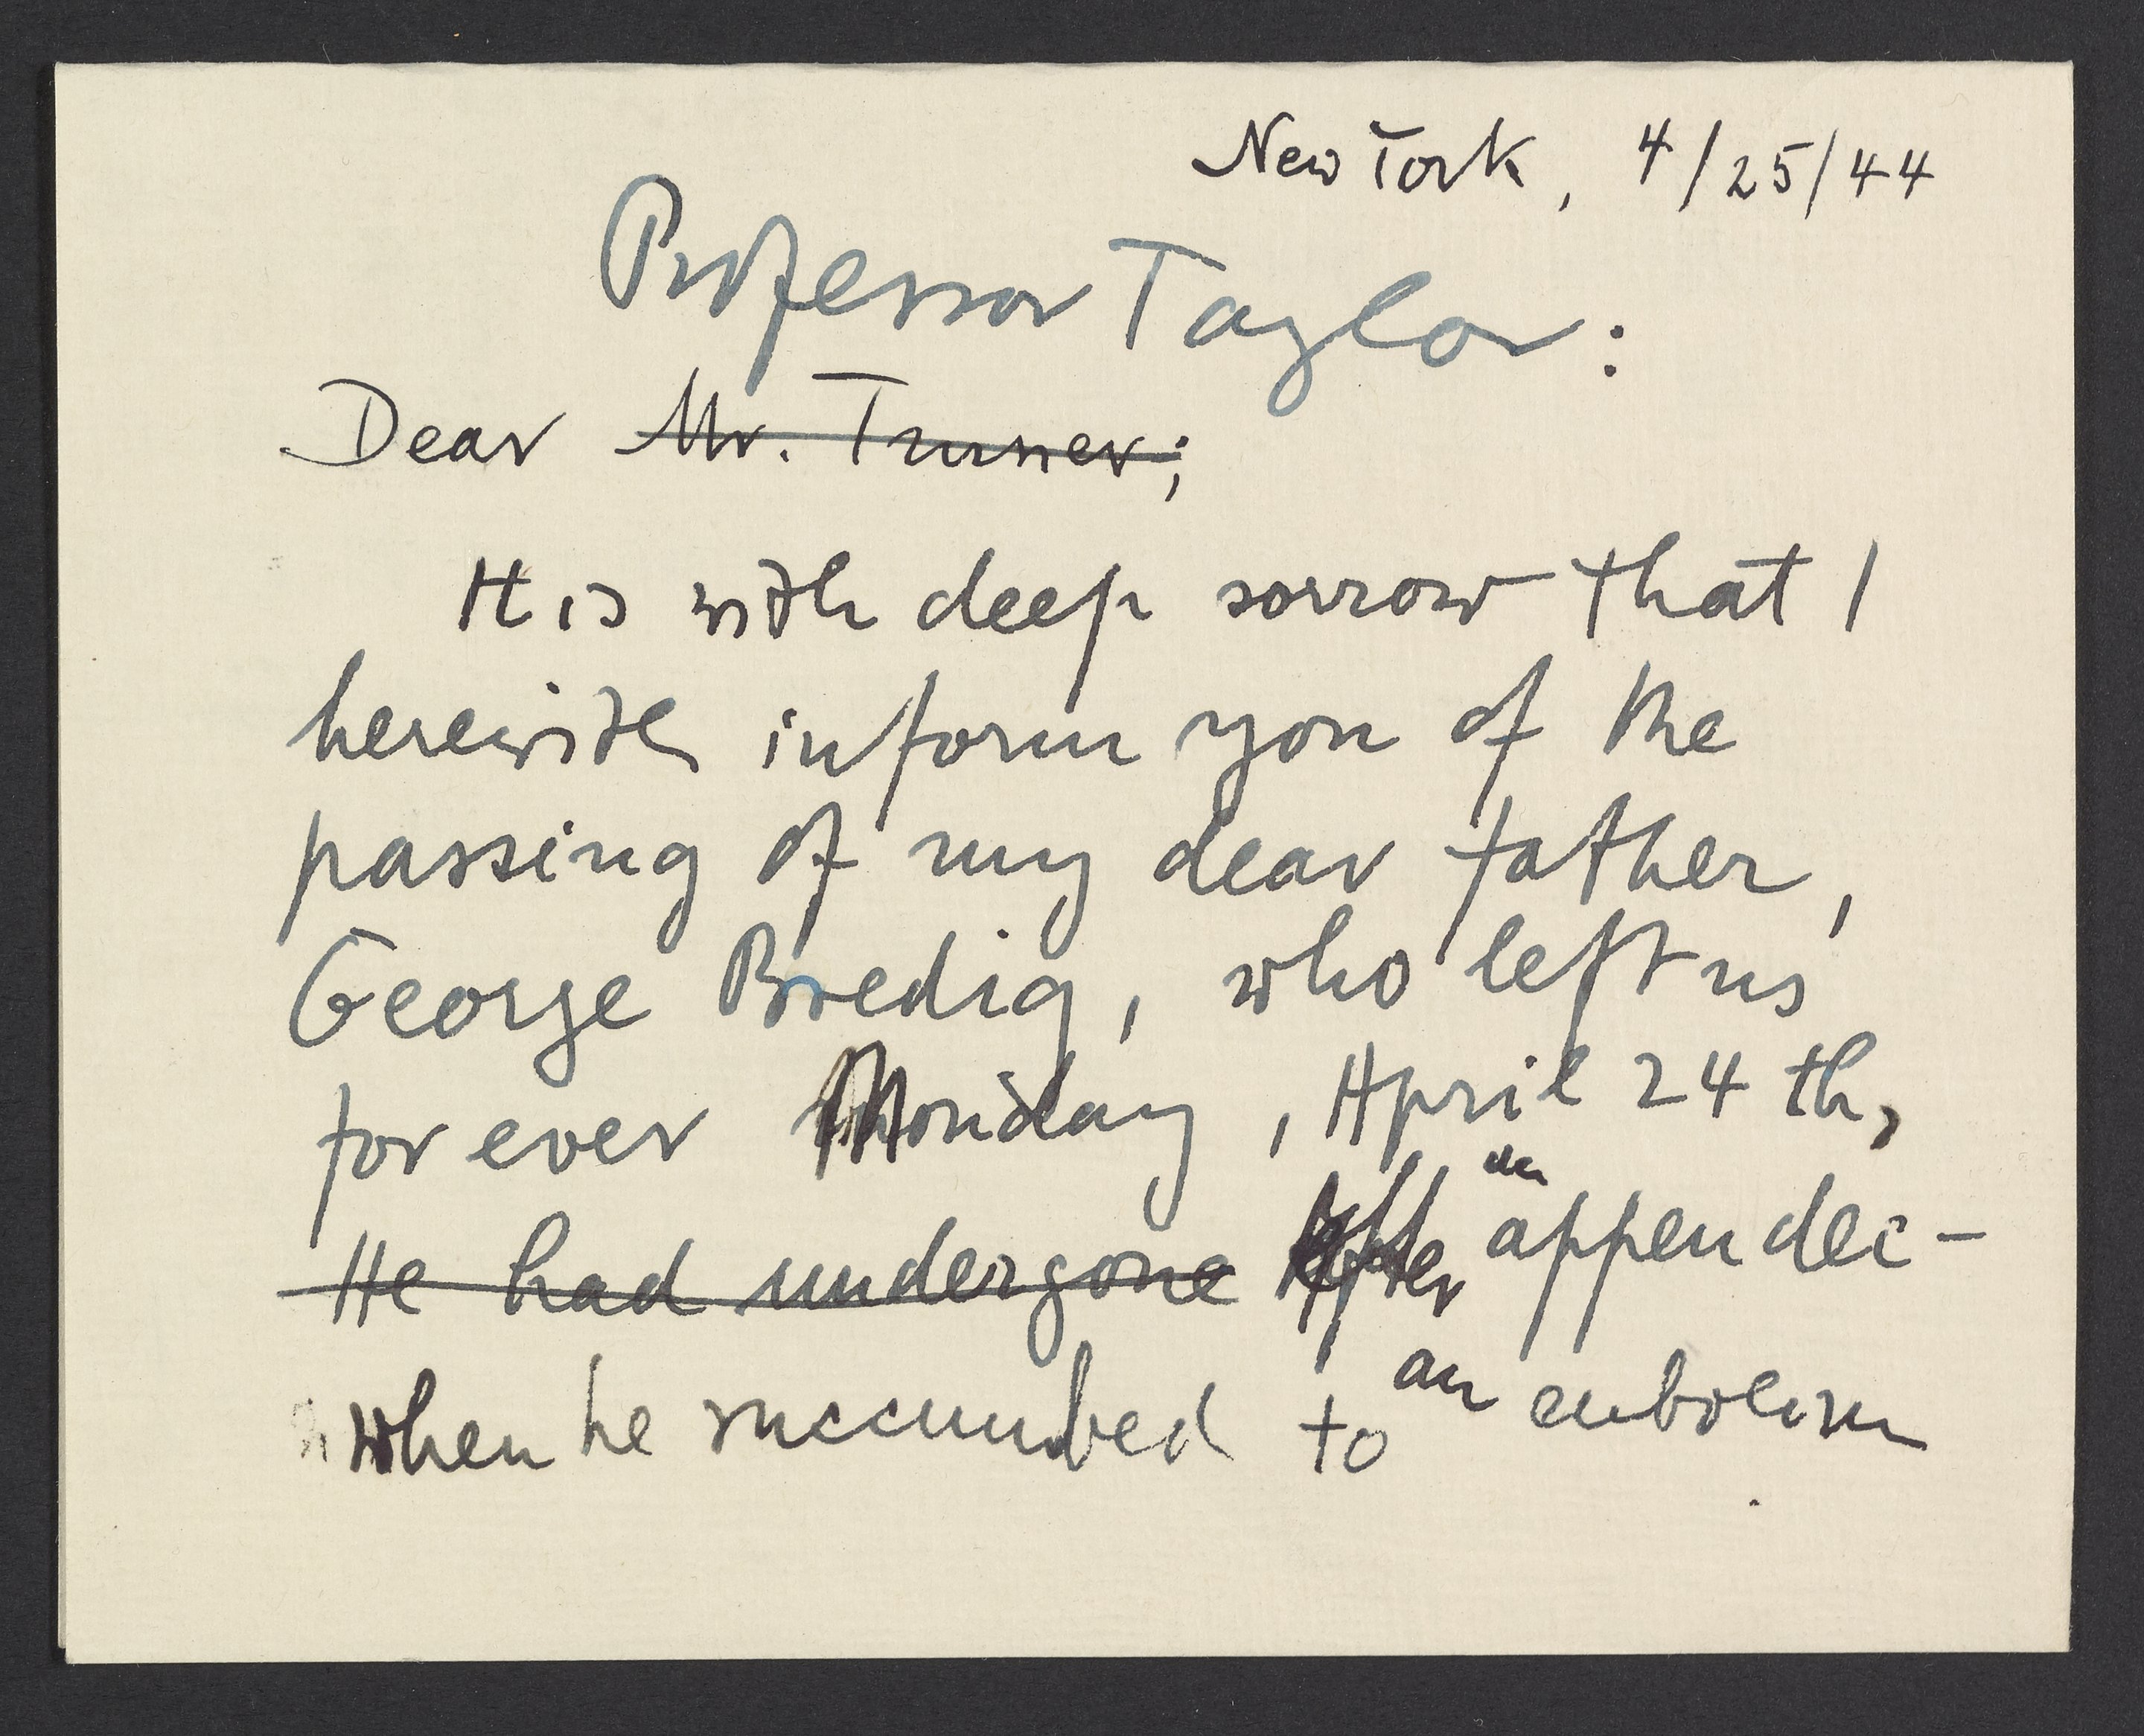 New York, 4/25/44
Professor Taylor:
Dear Mr. Turner;
It is with deep sorrow that I
herewith inform you of the
passing of my dear father,
George Bredig, who left us
for ever Monday, April 24th,
He had undergone after an appendec-
when he succumbed to an embolism